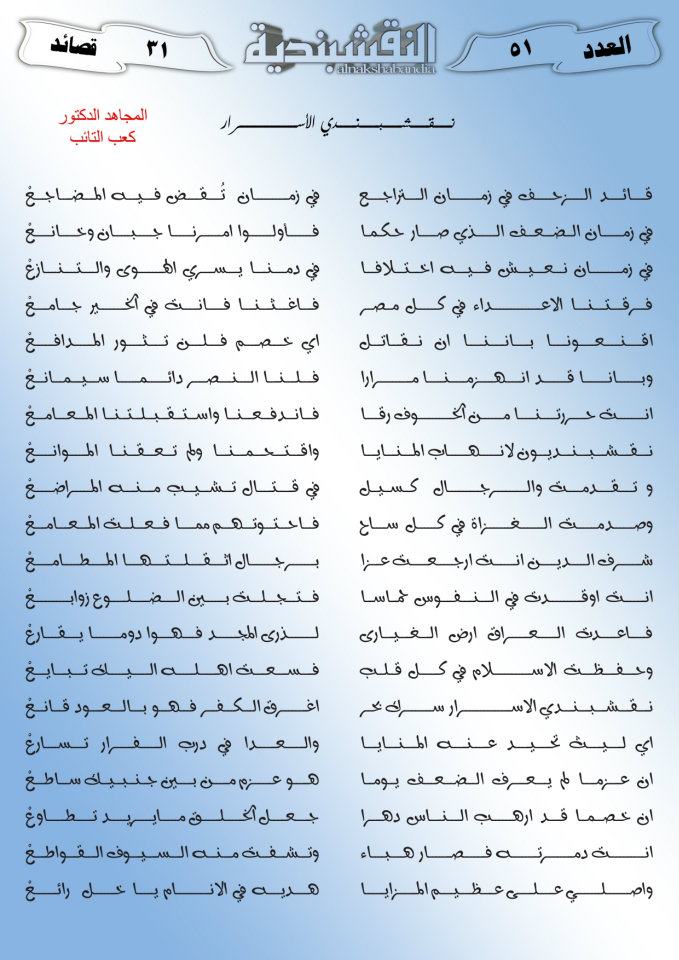 العدد ٥١ النقشبندية ٣١ قصائد
alnakshabandia
المجاهد الدكتور
كعب التائب
نقشبندي الأسرار
قائد الزحف في زمان التراجع في زمان تُقض فيه المضاجعْ
في زمان الضعف الذي صار حكما فأولوا امرنا جبان وخانعْ
في زمان نعيش فيه اختلافا في دمنا يسري الهوى والتنازعْ
فرقتنا الاعداء في كل مصر فاغثنا فانت في الخير جامعْ
اقنعونا باننا ان نقاتل اي خصم فلن تثور المدافعْ
وبانا قد انهزمنا مرارا فلنا النصر دائما سيمانعْ
انت حررتنا من الخوف رقا فاندفعنا واستقبلتنا المعامعْ
نقشبنديون لانهاب المنايا واقتحمنا ولم تعقنا الموانعْ
وتقدمت والرجال كسيل في قتال تشيب منه المراضعْ
وصدمت الغزاة في كل ساح فاحتوتهم مما فعلت المعامعْ
شرف الدين انت ارجعت عزا برجال اثقلتها المطامعْ
انت اوقدت في النفوس حماسا فتجلت بين الضلوع زوابعْ
فاعدت العراق ارض الغيارى لذرى المجد فهوا دوما يقارعْ
وحفظت الاسلام في كل قلب فسعت اهله اليك تبايعْ
نقشبندي الاسرار سرك بحر اغرق الكفر فهو بالعود قانعْ
اي ليث تحيد عنه المنايا والعدا في درب الفرار تسارعْ
ان عزما لم يعرف الضعف يوما هو عزم من بين جنبيك ساطعْ
ان خصما قد ارهب الناس دهرا جعل الخلق مايريد تطاوعْ
انت دمرته فصار هباء وتشفت منه السيوف القواطعْ
واصلي على عظيم المزايا هديه في الانام يا خل رائعْ